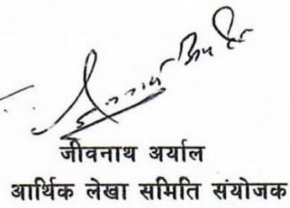 जीवनाथ अर्याल
आर्थिक लेखा समिति संयोजक